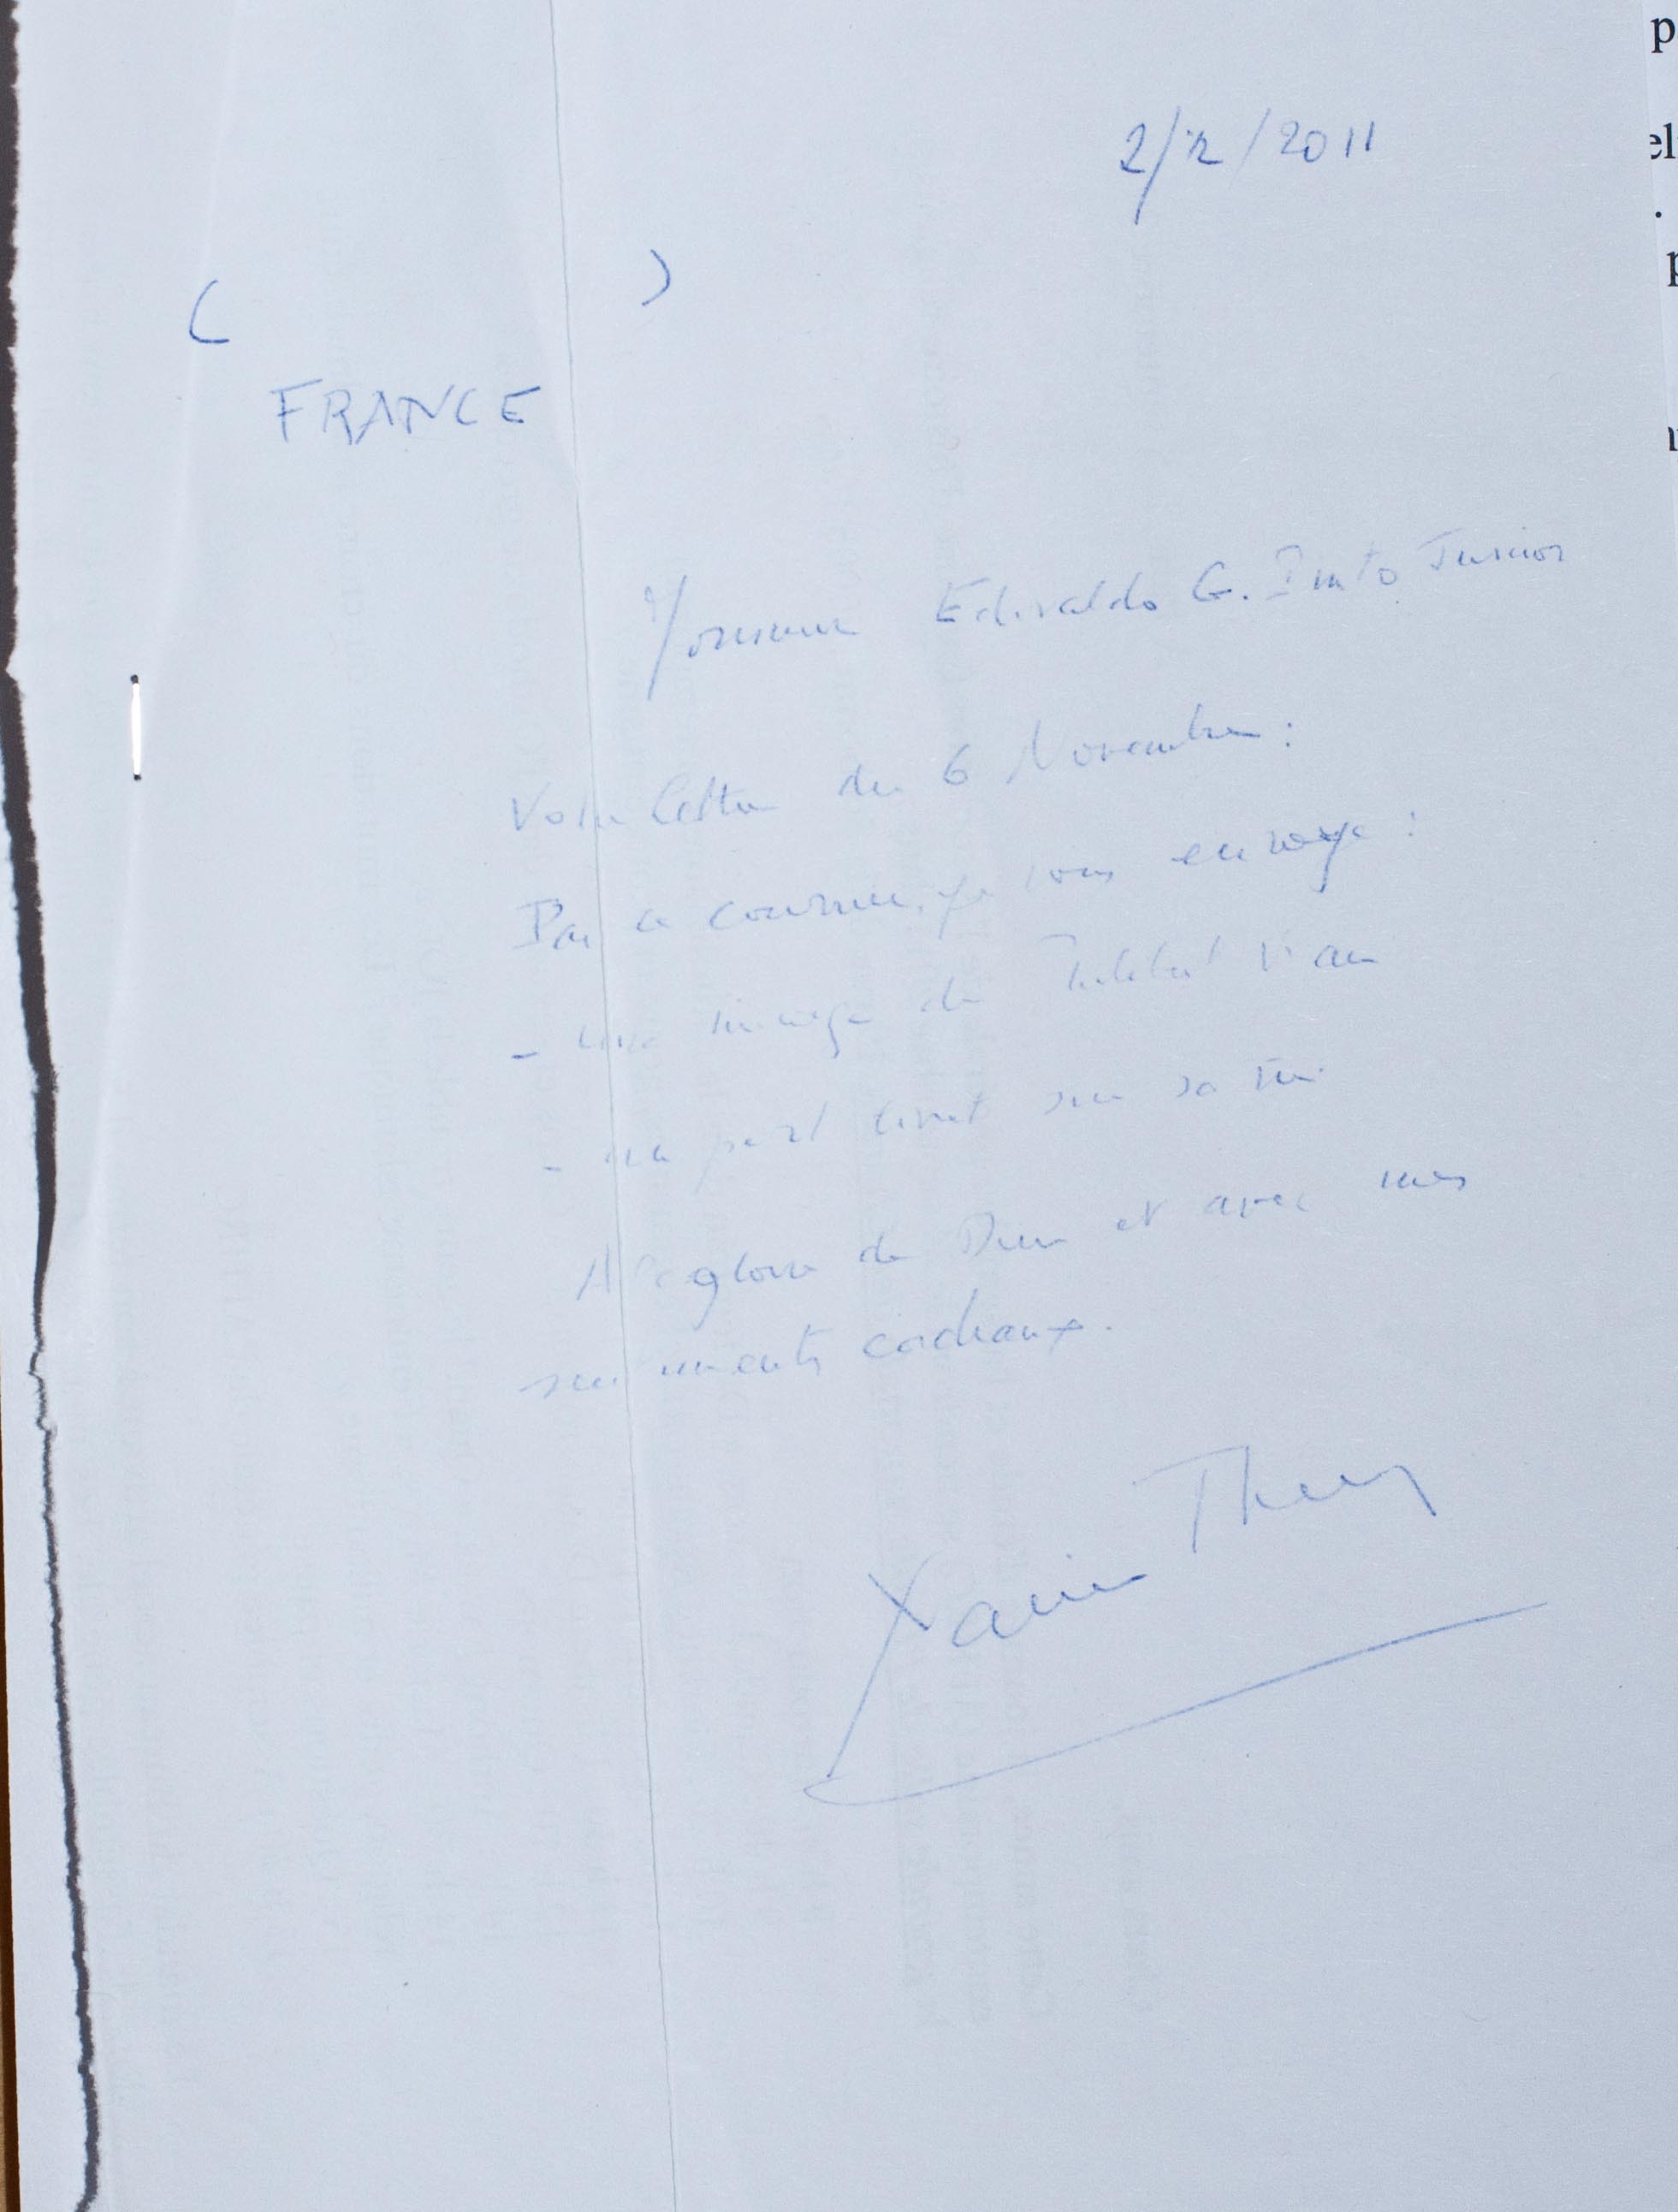 2/12/2011
( )
FRANCE
Monsieur Edivaldo G. Pinto Junior
Votre lettre du 6 Novembre :
Par ce courrier, je vous envoye :
- une image de Philibert Vrau
- un petit livret sur sa vie
A la gloire de Dieu et avec mes
sentiments cordiaux.
Xavier Thery
p
el
.
p